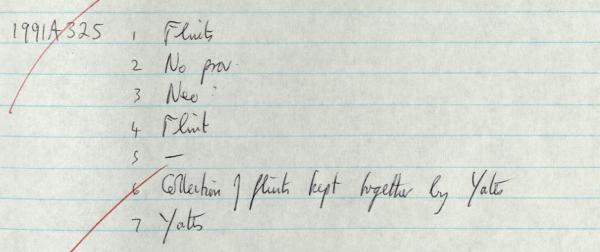 1991A325 1 Flints
2 No prov.
3 Neo :
4 Flint
5 —
6 Collection of flints kept together by Yates
7 Yates